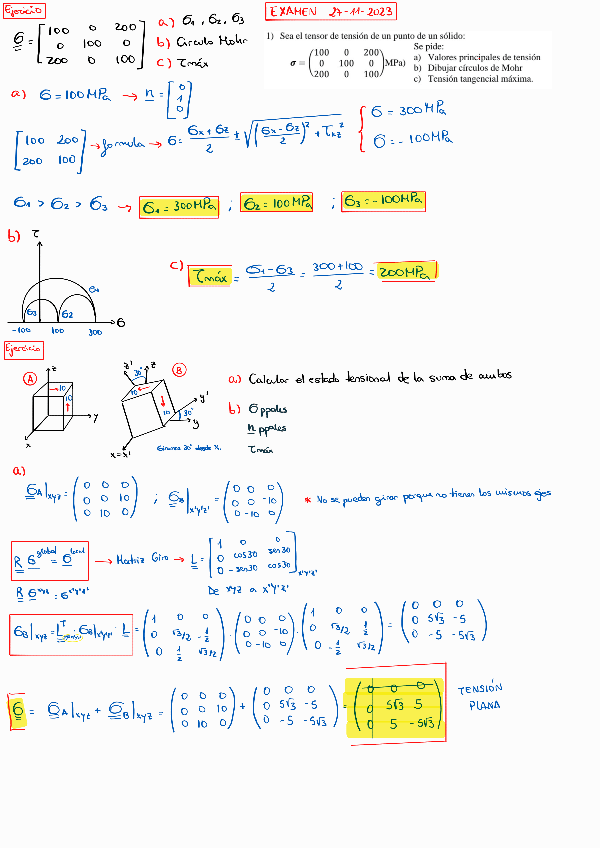 Ejercicio
EXAMEN 27-11-2023
σ = [100 0 200; 0 100 0; 200 0 100]
a) σ1, σ2, σ3
b) Círculo Mohr
c) τmáx
1) Sea el tensor de tensión de un punto de un sólido:
σ = (100 0 200; 0 100 0; 200 0 100) MPa)
Se pide:
a) Valores principales de tensión
b) Dibujar círculos de Mohr
c) Tensión tangencial máxima.
a) σ = 100 MPa → n = [0; 1; 0]
[100 200; 200 100] → formula → σ = (σx + σz)/2 ± √(((σx - σz)/2)² + τxz²)
σ = 300 MPa
σ = -100 MPa
σ1 > σ2 > σ3 → σ1 = 300 MPa ; σ2 = 100 MPa ; σ3 = -100 MPa
b) τ
σ1
σ3 σ2
σ
-100 100 300
c) τmáx = (σ1 - σ3)/2 = (300 + 100)/2 = 200 MPa
Ejercicio
A
z
10
10
y
x
B
z' 30° z
10
10
y'
30°
y
x=x'
Giramos 30° desde X.
a) Calcular el estado tensional de la suma de ambos
b) σ ppales
n ppales
τmáx
a)
σA|xyz = (0 0 0; 0 0 10; 0 10 0) ; σB|x'y'z' = (0 0 0; 0 0 -10; 0 -10 0)
* No se pueden girar porque no tienen los mismos ejes
R σ global = σ local → Matriz Giro → L = [1 0 0; 0 cos30 sen30; 0 -sen30 cos30] x'y'z'
R σ xyz = σ x'y'z'
De xyz a x'y'z'
σB|xyz = L^T · σB|x'y'z' · L = (1 0 0; 0 √3/2 -1/2; 0 1/2 √3/2) · (0 0 0; 0 0 -10; 0 -10 0) · (1 0 0; 0 √3/2 1/2; 0 -1/2 √3/2) = (0 0 0; 0 5√3 -5; 0 -5 -5√3)
σ = σA|xyz + σB|xyz = (0 0 0; 0 0 10; 0 10 0) + (0 0 0; 0 5√3 -5; 0 -5 -5√3) = (0 0 0; 0 5√3 5; 0 5 -5√3)
TENSIÓN
PLANA